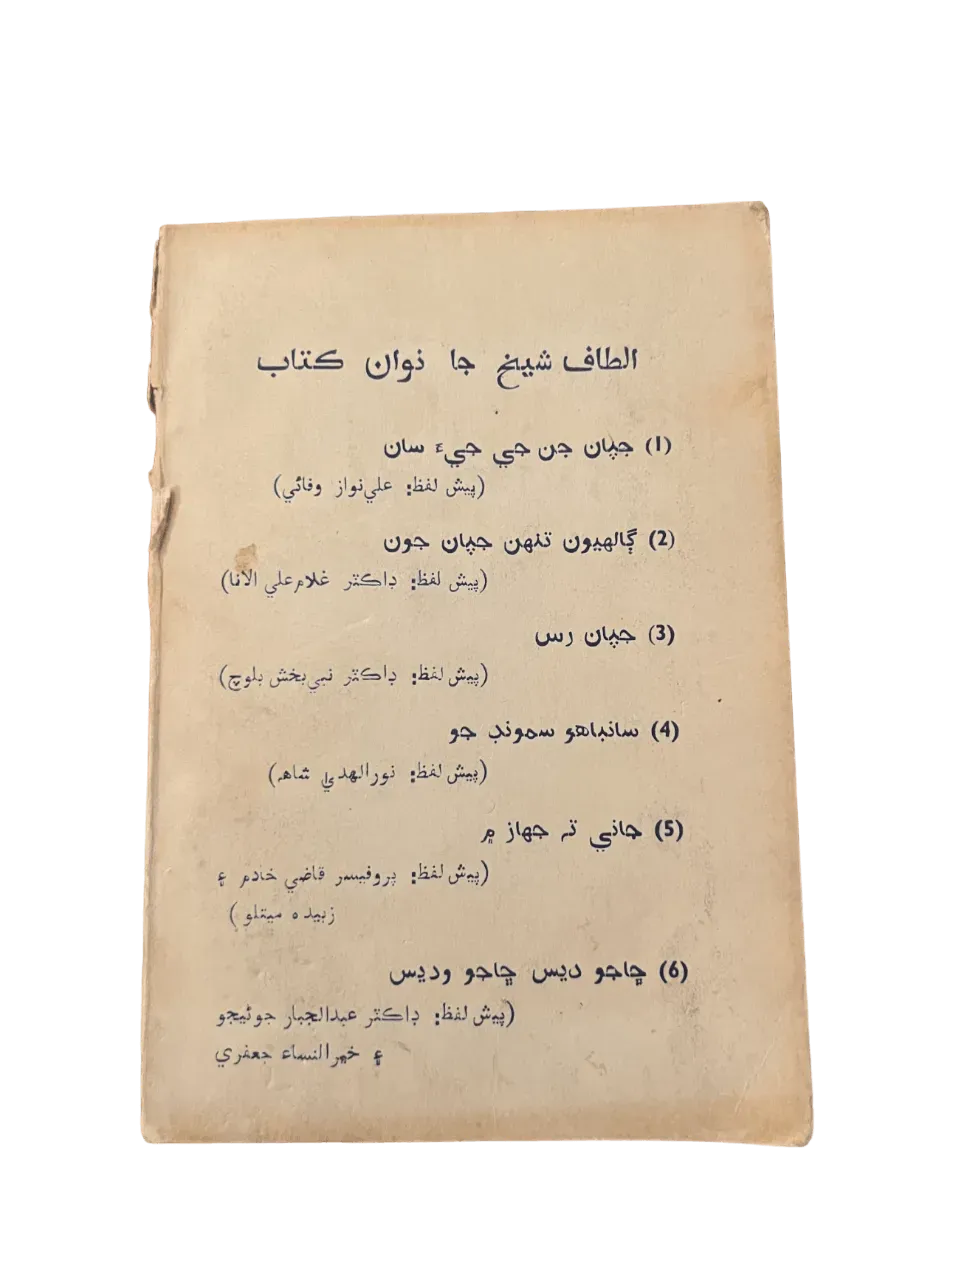 الطاف شيخ جا نوان ڪتاب
(1) جپان جن جي جيءَ سان
(پيش لفظ: علي نواز وفائي)
(2) ڳالهيون تنهن جپان جون
(پيش لفظ: ڊاڪٽر غلام علي الانا)
(3) جپان رس
(پيش لفظ: ڊاڪٽر نبي بخش بلوچ)
(4) سانباهو سمونڊ جو
(پيش لفظ: نورالهديٰ شاهه)
(5) جاني ته جهاز ۾
(پيش لفظ: پروفيسر قاضي خادم ۽
زبيده ميتلو)
(6) ڇاجو ديس ڇاجو وديس
(پيش لفظ: ڊاڪٽر عبدالجبار جوڻيجو
۽ خمرالنساء جعفري